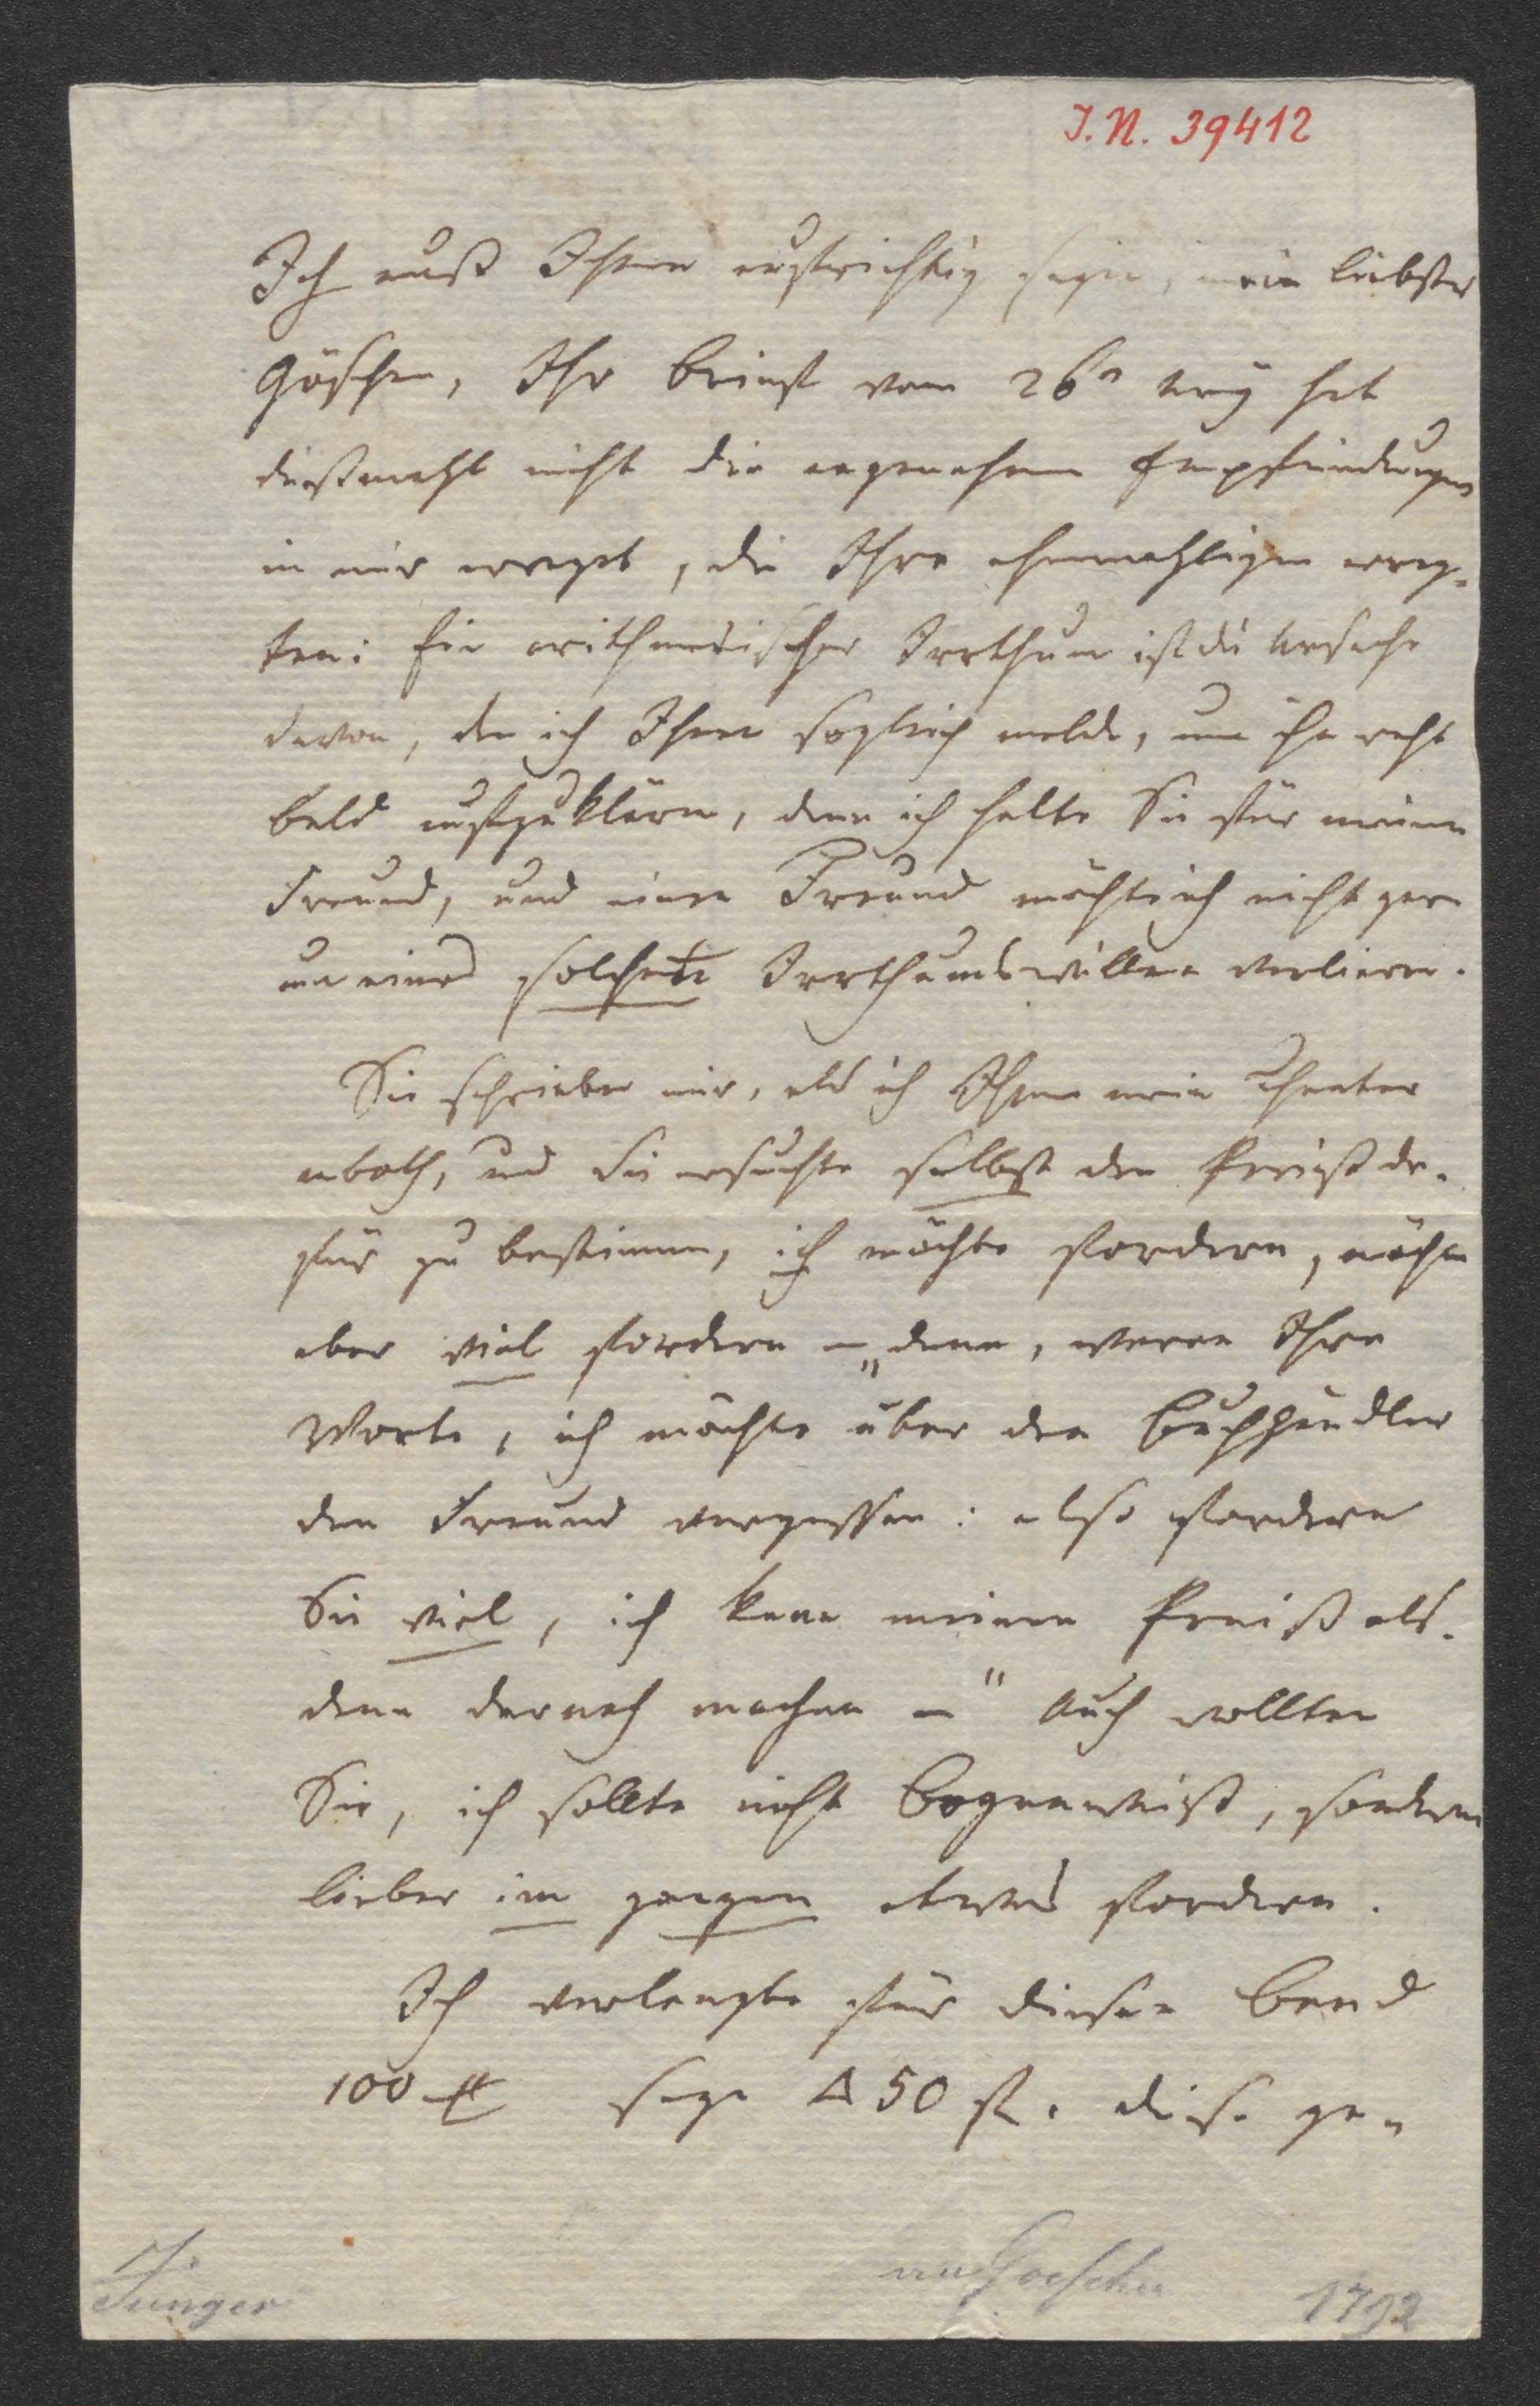 I.N. 39412
Ich muß Ihnen aufrichtig sagen, mein liebster
Göschen, Ihr Brief vom 26n hat
dießmahl nicht die angenehmen Empfindungen
in mir erregt, die Ihre ehemahligen erreg-
ten: Ein arithmetischer Irrthum ist die Ursache
davon, den ich Ihnen sogleich melde, um ihn recht
bald aufzuklären, denn ich halte Sie für meinen
Freund, und einen Freund möcht ich nicht gern
um eines solchen Irrthums willen verlieren.
Sie schrieben mir, als ich Ihnen mein Theater
anboth, und Sie ersuchte selbst den Preiß da-
für zu bestimmen, ich möchte fordern, möchte
aber viel fordern – „denn, waren Ihre
Worte, ich möchte über den Buchhändler
den Freund vergessen: also fordern
Sie viel, ich kann meinen Preiß als-
dann darnach machen –“ Auch wollten
Sie, ich sollte nicht Bogenweiß, sondern
lieber im ganzen etwas fordern.
Ich verlangte für diesen Band
100 # sage 450 fl. diese gan
Jünger
an Goeschen
1792